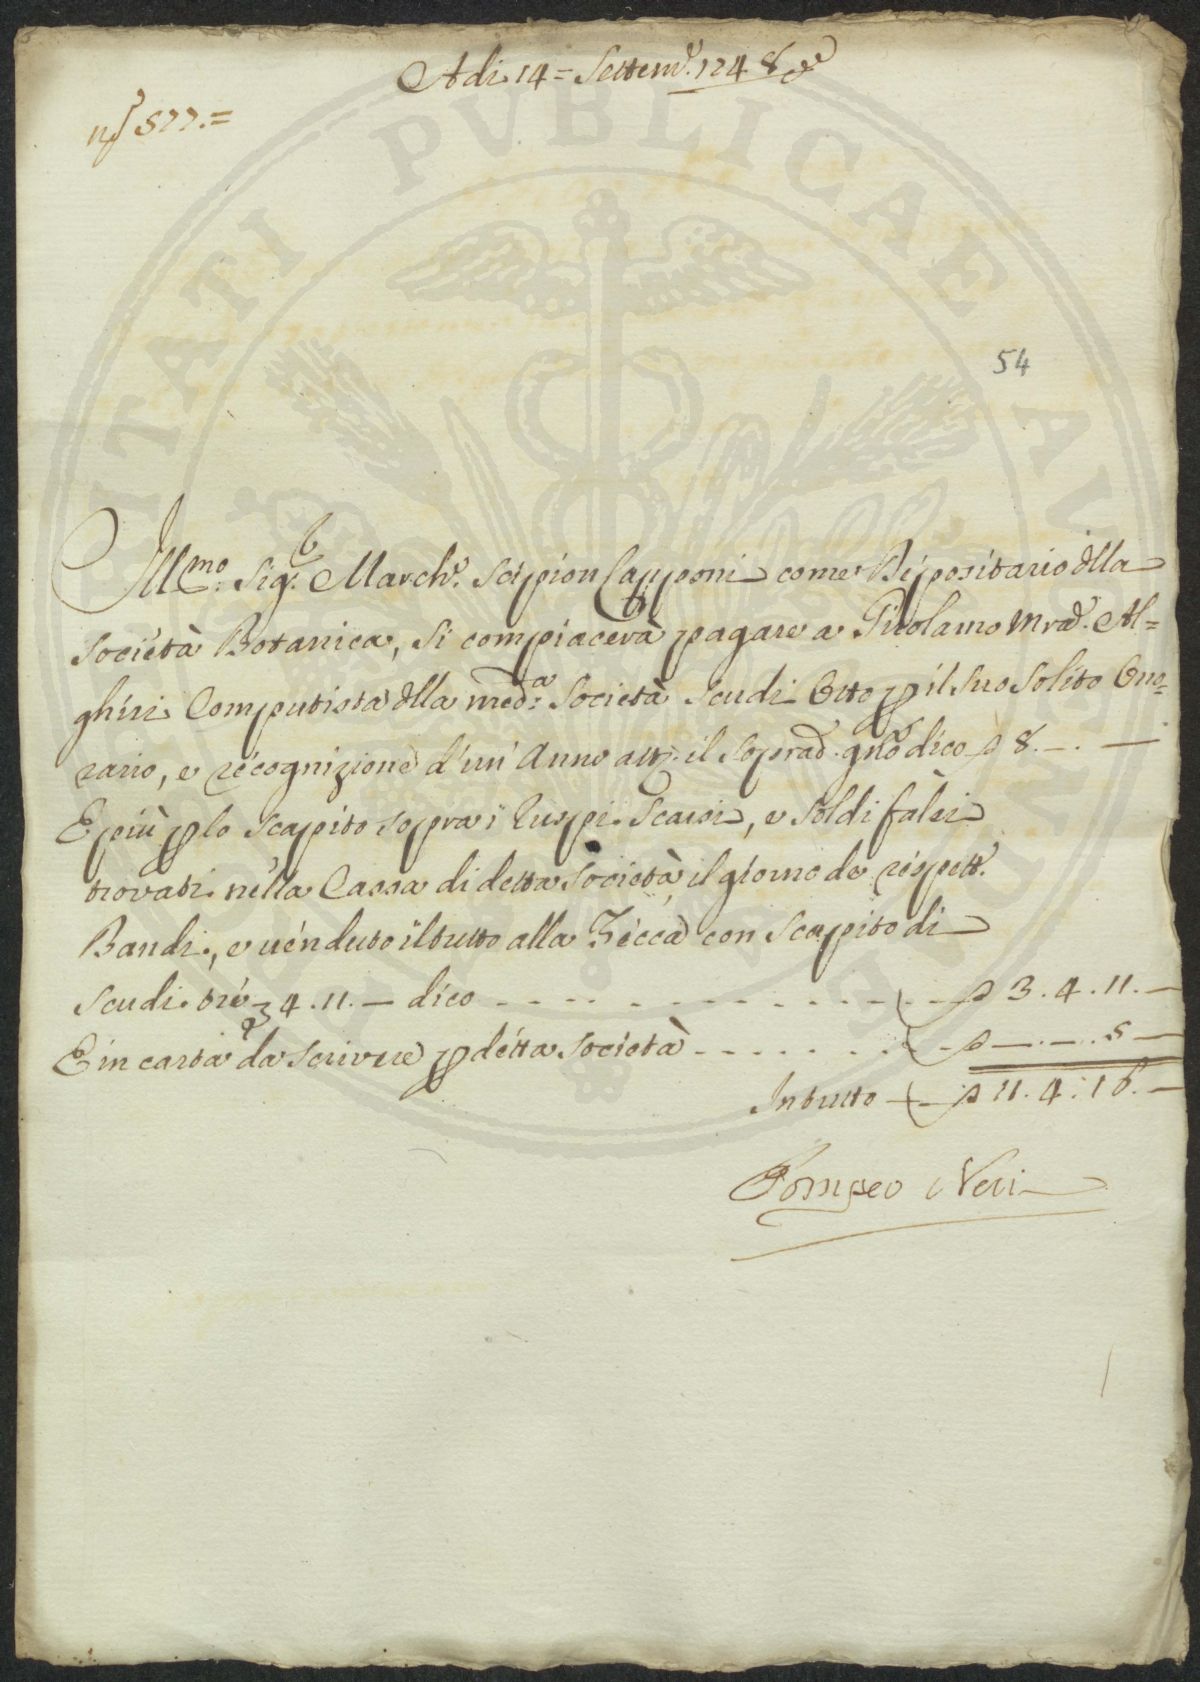 Adi 14 = Settem.e 1748
no 577.=
54
Ill.mo Sig.r March.e Scipion Capponi come Dipositario dlla
Società Botanica, si compiacerà pagare a Girolamo Mra. Al=
ghiri Computista dlla med.a Società Scudi Otto p il suo solito Ono=
rario, e recognizione d'un' Anno a tt.o il soprad. gno dico 8.-.-
E più p lo scapito sopra i Ruspi Scarsi, e Soldi falsi
trovati nella Cassa di detta Società il giorno de respett.
Bandi, e venduto il tutto alla Zecca con scapito di
Scudi tre 4.11.- dico 3.4.11.-
E in carta da scrivere p detta Società -.-.5-
In tutto 11.4.16.-
Pompeo Neri
VTILITATI PVBLICAE